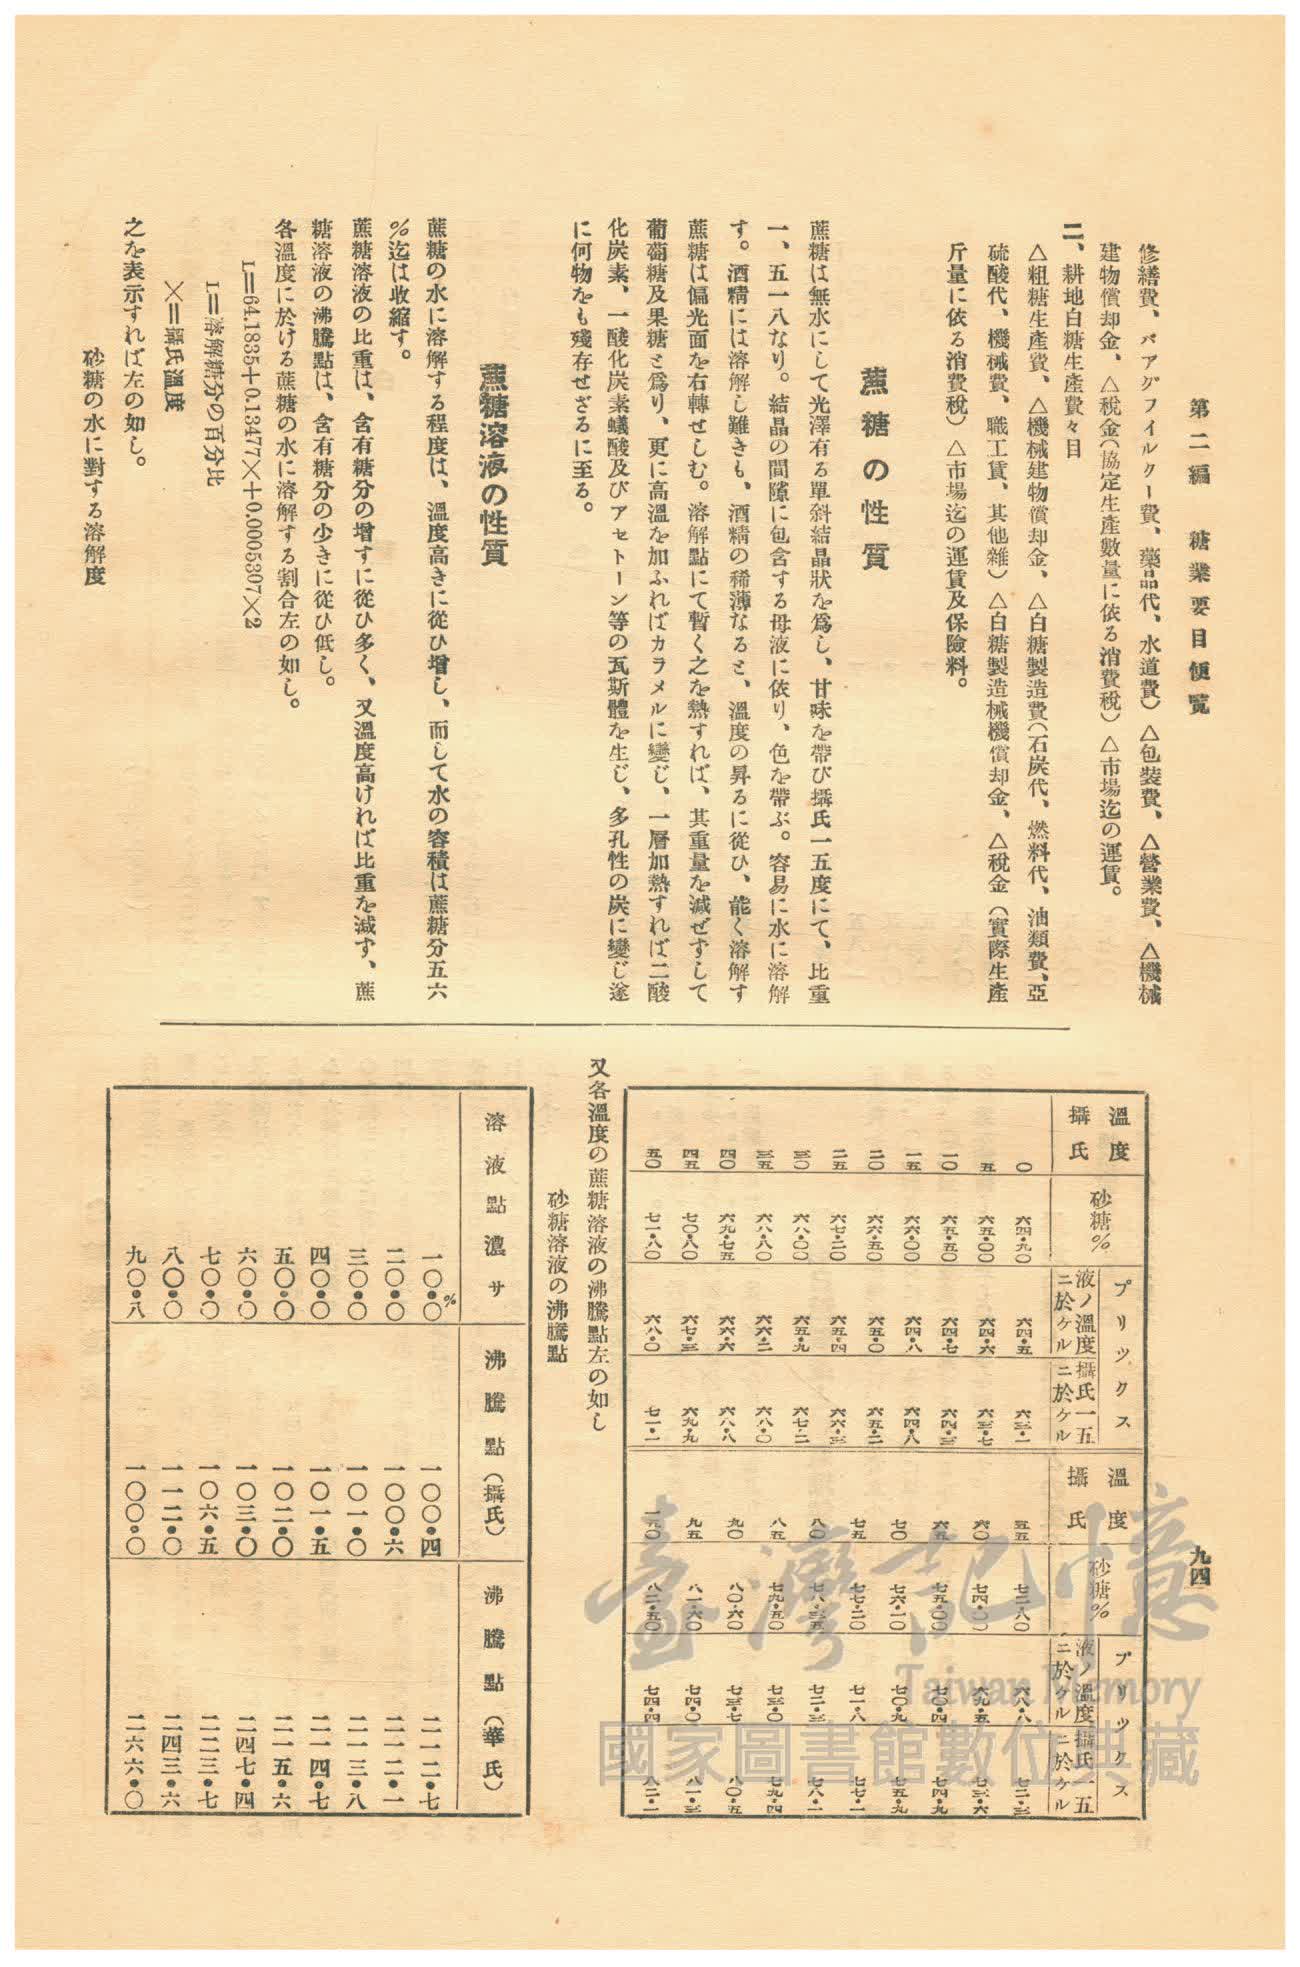 第二編　糖業要目便覧
九四
修繕費、バアグフイルター費、藥品代、水道費）△包裝費、△營業費、△機械
建物償却金、△稅金（協定生產數量に依る消費稅）△市場迄の運賃。
二、耕地白糖生產費々目
△粗糖生產費、△機械建物償却金、△白糖製造費（石炭代、燃料代、油類費、亞
硫酸代、機械費、職工賃、其他雜）△白糖製造械機償却金、△稅金（實際生產
斤量に依る消費稅）△市場迄の運賃及保險料。
蔗糖の性質
蔗糖は無水にして光澤有る單斜結晶狀を爲し、甘味を帶び攝氏一五度にて、比重
一、五一八なり。結晶の間隙に包含する母液に依り、色を帶ぶ。容易に水に溶解
す。酒精には溶解し難きも、酒精の稀薄なると、溫度の昇るに從ひ、能く溶解す
蔗糖は偏光面を右轉せしむ。溶解點にて暫く之を熱すれば、其重量を減ぜずして
葡萄糖及果糖と爲り、更に高溫を加ふればカラメルに變じ、一層加熱すれば二酸
化炭素、一酸化炭素蟻酸及びアセトーン等の瓦斯體を生じ、多孔性の炭に變じ遂
に何物をも殘存せざるに至る。
蔗糖溶液の性質
蔗糖の水に溶解する程度は、溫度高きに從ひ增し、而して水の容積は蔗糖分五六
％迄は收縮す。
蔗糖溶液の比重は、含有糖分の增すに從ひ多く、又溫度高ければ比重を減す、蔗
糖溶液の沸騰點は、含有糖分の少きに從ひ低し。
各溫度に於ける蔗糖の水に溶解する割合左の如し。
L＝64.1835＋0.13477×＋0.0005307×2
L＝溶解糖分の百分比
×＝攝氏溫度
之を表示すれば左の如し。
砂糖の水に對する溶解度
溫度攝氏　砂糖％　ブリツクス　液ノ溫度ニ於ケル　攝氏一五ニ於ケル
〇　六四・九〇　六四・五　六三・一
五　六五・〇〇　六四・六　六三・七
一〇　六五・五〇　六四・七　六四・三
一五　六六・〇〇　六四・八　六四・八
二〇　六六・五〇　六五・〇　六五・二
二五　六七・二〇　六五・四　六六・三
三〇　六八・〇〇　六五・九　六七・二
三五　六八・八〇　六六・二　六八・〇
四〇　六九・七五　六六・六　六八・八
四五　七〇・八〇　六七・三　六九・九
五〇　七一・八〇　六八・〇　七一・一
溫度攝氏　砂糖％　ブリツクス　液ノ溫度ニ於ケル　攝氏一五ニ於ケル
五五　七二・八〇　六八・八　七二・三
六〇　七四・〇　六九・五　七三・六
六五　七五・〇〇　七〇・四　七四・九
七〇　七六・一〇　七〇・九　七五・九
七五　七七・二〇　七一・八　七七・一
八〇　七八・三五　七二・三　七八・一
八五　七九・五〇　七三・〇　七九・四
九〇　八〇・六〇　七三・七　八〇・五
九五　八一・六〇　七四・〇　八一・三
八二・五〇　七四・四　八二・一
又各溫度の蔗糖溶液の沸騰點左の如し
砂糖溶液の沸騰點
溶液點濃サ　沸騰點（攝氏）　沸騰點（華氏）
一〇・〇％　一〇〇・四　二一二・七
二〇・〇　一〇〇・六　二一二・一
三〇・〇　一〇一・〇　二一三・八
四〇・〇　一〇一・五　二一四・七
五〇・〇　一〇二・〇　二一五・六
六〇・〇　一〇三・〇　二四七・四
七〇・〇　一〇六・五　二二三・七
八〇・〇　一一二・〇　二四三・六
九〇・八　一〇〇・〇　二六六・〇
臺灣記憶
Taiwan Memory
國家圖書館數位典藏